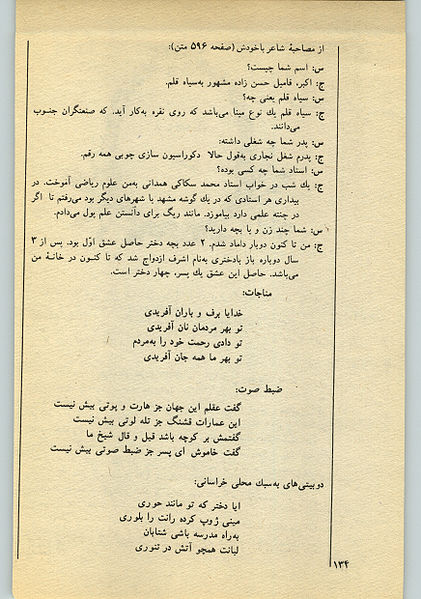 از مصاحبهٔ شاعر باخودش (صفحه ۵۹۶ متن):
س: اسم شما چیست؟
ج: اکبر، فامیل حسن زاده مشهور به‌سیاه قلم.
س: سیاه قلم یعنی چه؟
ج: سیاه قلم یك نوع مینا می‌باشد که روی نقره به‌کار آید. که صنعتگران جنوب
می‌دانند.
س: پدر شما چه شغلی داشته:
ج: پدرم شغل نجاری به‌قول حالا دکوراسیون سازی چوبی همه رقم.
س: استاد شما چه کسی بوده؟
ج: یك شب در خواب استاد محمد سکاکی همدانی به‌من علوم ریاضی آموخت. در
بیداری هر استادی که در یك گوشه مشهد یا شهرهای دیگر بود می‌رفتم تا اگر
در چنته علمی دارد بیاموزد. مانند ریگ برای دانستن علم پول می‌دادم.
س: شما چند زن و یا بچه دارید؟
ج: من تا کنون دوبار داماد شدم. ۲ عدد بچه دختر حاصل عشق اوّل بود. پس از ۳
سال دوباره باز بادختری به‌نام اشرف ازدواج شد که تا کنون در خانهٔ من
می‌باشد. حاصل این عشق یك پسر، چهار دختر است.
مناجات:
خدایا برف و باران آفریدی
تو بهر مردمان نان آفریدی
تو دادی رحمت خود را به‌مردم
تو بهر ما همه جان آفریدی
ضبط صوت:
گفت عقلم این جهان جز هارت و پوتی بیش نیست
این عمارات قشنگ جز تله لوتی بیش نیست
گفتمش بر کوچه باشد قیل و قال شیخ ما
گفت خاموش ای پسر جز ضبط صوتی بیش نیست
دوبیتی‌های به‌سبك محلی خراسانی:
ایا دختر که تو مانند حوری
مینی ژوپ کرده رانت را بلوری
به‌راه مدرسه باشی شتابان
لبانت همچو آتش در تنوری
۱۳۴